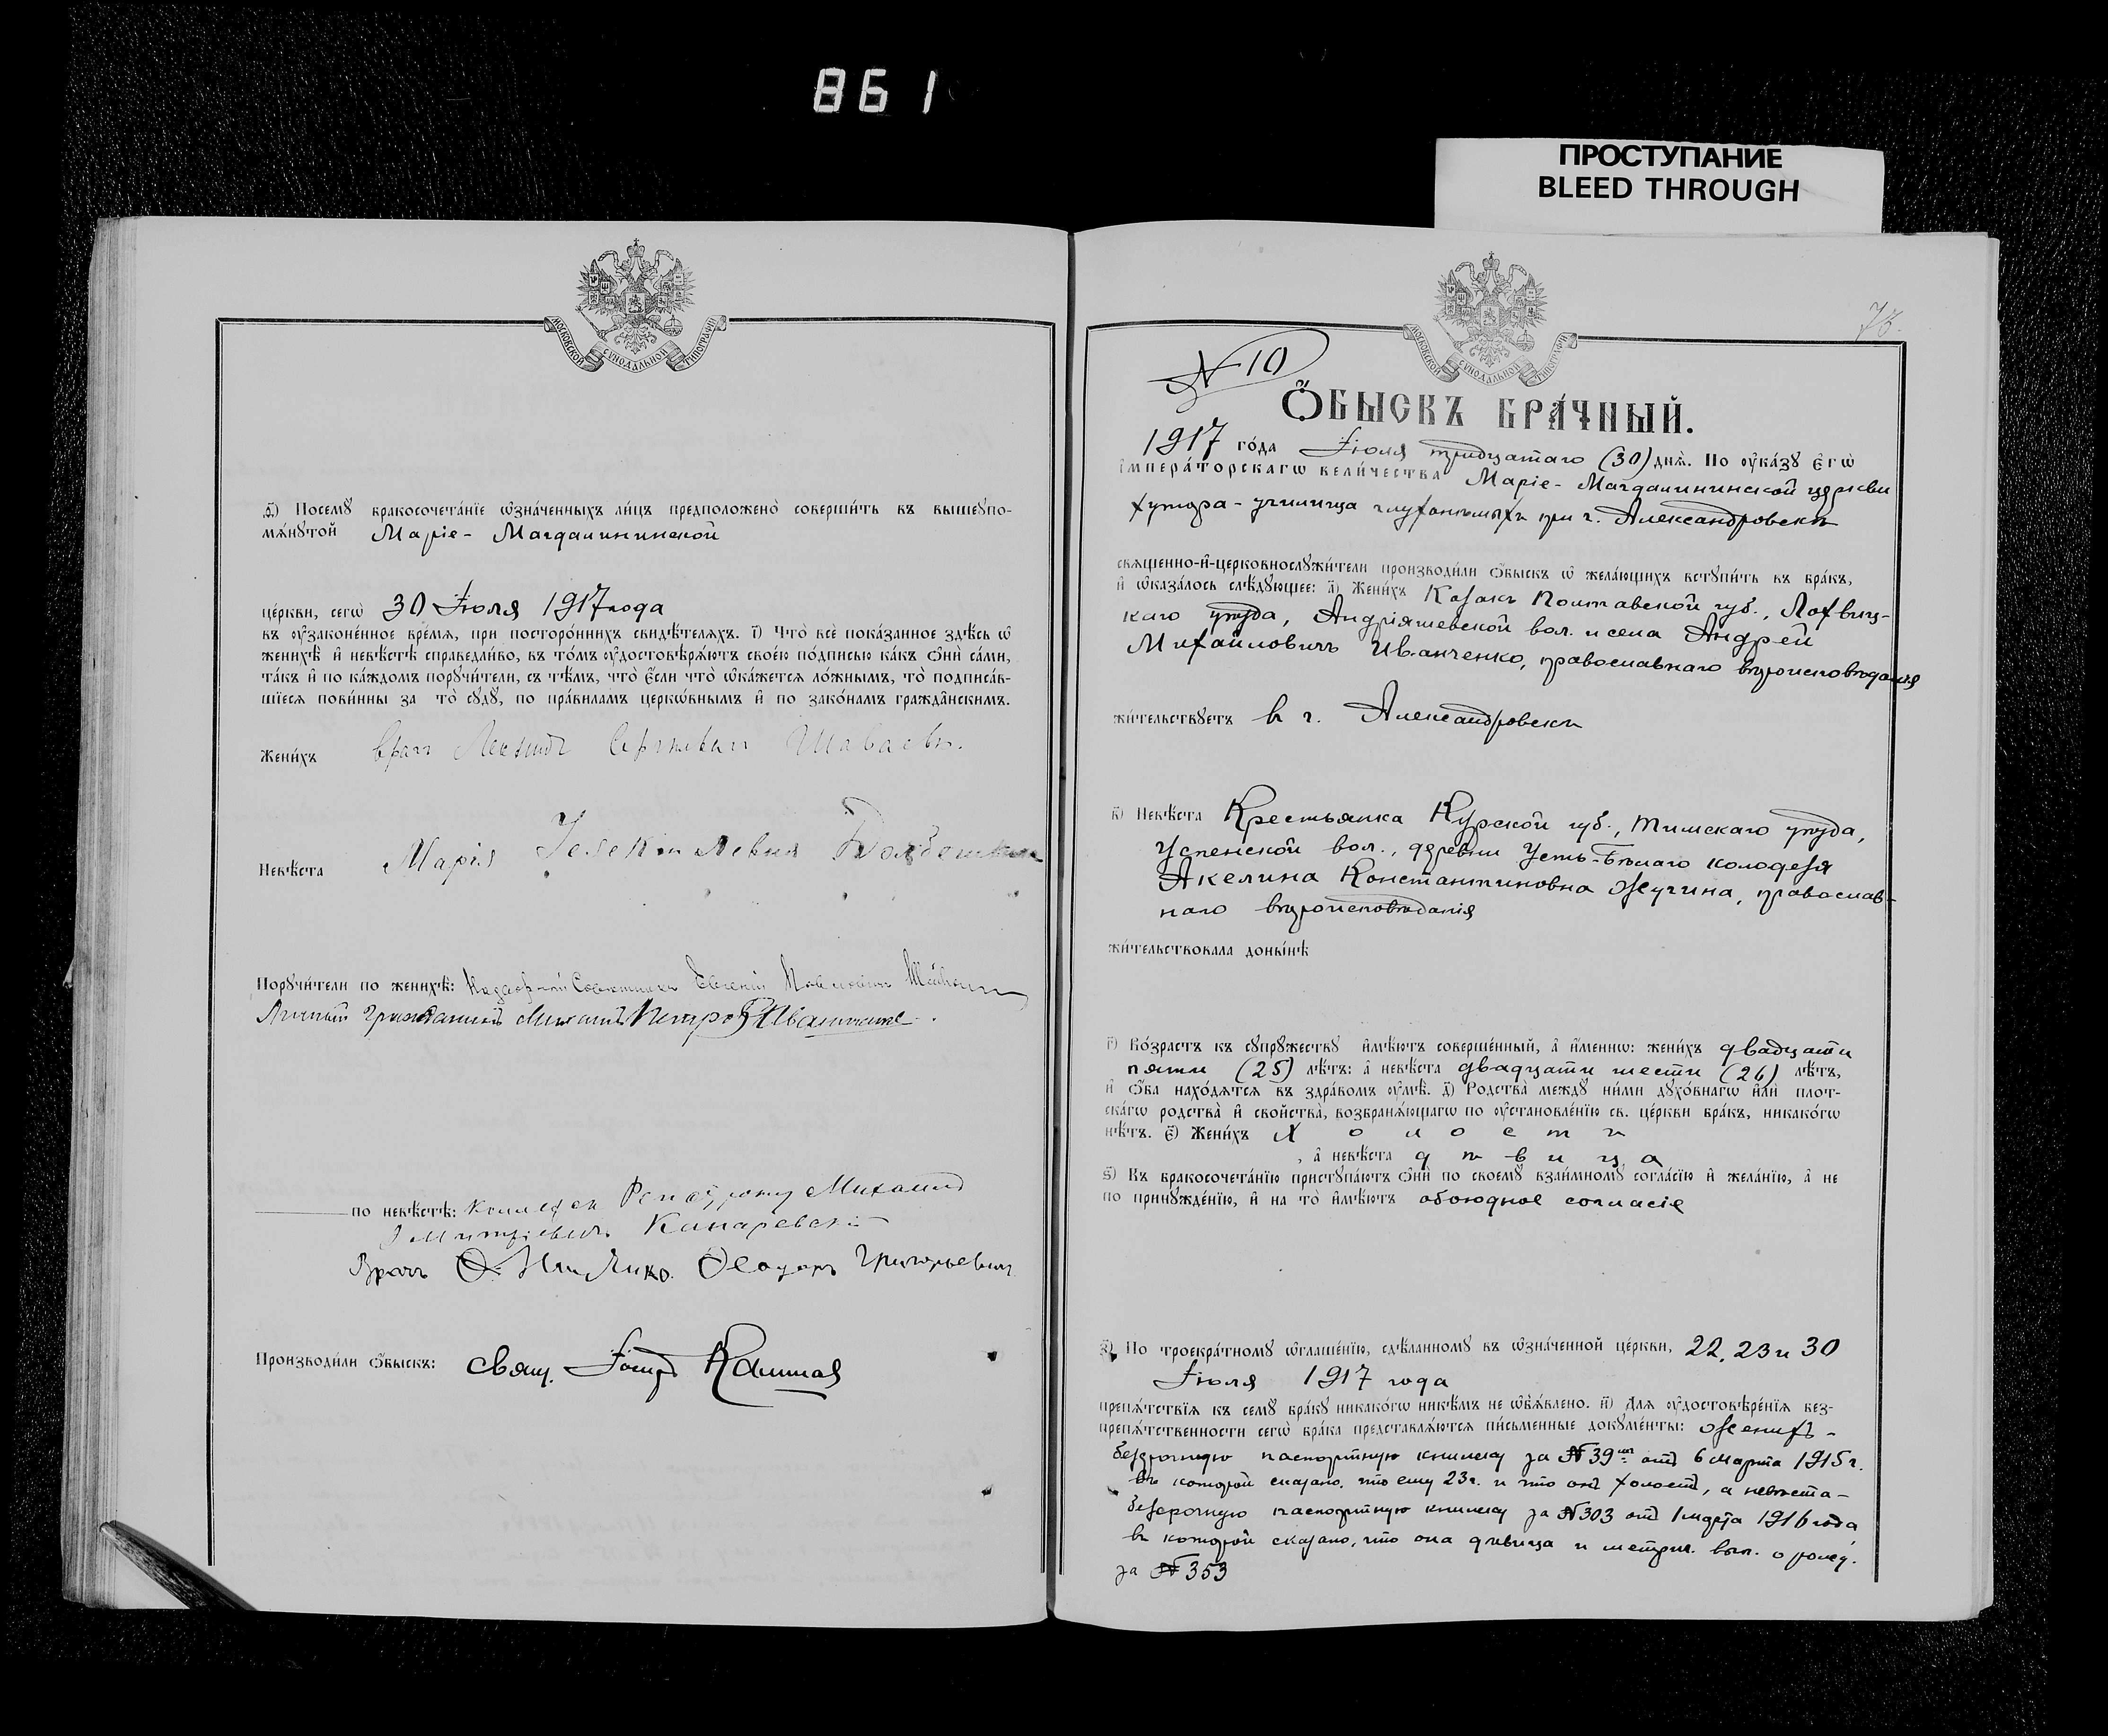 861
ПРОСТУПАНИЕ
BLEED THROUGH
МОСКОВСКОЙ СУНОДАЛЬНОЙ ТИПОГРАФІИ
ѳ҃) Посемꙋ бракосочета́нїе ѡ҆зна́ченныхъ ли́цъ предположено̀ соверши́ть въ вышеꙋпо-
мѧ́нꙋтой Маріе - Магдалининской
це́ркви, сегѡ̀ 30 Іюля 1917 года
въ ᲂу҆зако́ненное вре́мѧ, при посторо́ннихъ свидѣ́телѧхъ. і҃) Что̀ всѐ пока́занное здѣ́сь ѡ҆
женихѣ̀ и҆ невѣ́стѣ справедли́во, въ то́мъ ᲂу҆достовѣрѧ́ютъ свое́ю по́дписью ка́къ ѻ҆нѝ са́ми,
та́къ и҆ по ка́ждомъ порꙋчи́тели, съ тѣ́мъ, что̀ є҆́сли что̀ ѡ҆ка́жетсѧ ло́жнымъ, то̀ подписа́в-
шїесѧ пови́нны за то̀ сꙋдꙋ̀, по пра́виламъ церкѡ́внымъ и҆ по зако́намъ гражда̂нскимъ.
Жени́хъ врач
Невѣ́ста Марія
Порꙋчи́тели по женихѣ̀: Евгеній
Личный
по невѣ́стѣ: Михаилъ
Врачъ Ѳ. Ѳеодоръ Григорьевич
Производи́ли ѻ҆́быскъ: свящ.
МОСКОВСКОЙ СУНОДАЛЬНОЙ ТИПОГРАФІИ
№ 10
Ѻ҆́БЫСКЪ БРА́ЧНЫЙ.
1917 го́да Іюля тридцатаго (30) днѧ̀. По ᲂу҆ка́зꙋ є҆гѡ̀
і҆мпера́торскагѡ вели́чества Маріе - Магдалининской церкви
хутора - училища глухонѣмыхъ при г. Александровскѣ
свѧще́нно-и҆-церковнослꙋжи́тели производи́ли ѻ҆́быскъ ѡ҆ жела́ющихъ встꙋпи́ть въ бра́къ,
и҆ ѡ҆каза́лось слѣ́дꙋющее: а҃) Жени́хъ Козакъ Полтавской губ., Лохвиц-
каго уѣзда, Андріяшевской вол. и села Андрей
Михайловичъ Иванченко, православнаго вѣроисповѣданія
жи́тельствꙋетъ в г. Александровскѣ
в҃) Невѣ́ста Крестьянка Курской губ., Тимскаго уѣзда,
Успенской вол., деревни Усть-Бѣлаго колодезя
Акелина Константиновна Жучина, православ-
наго вѣроисповѣданія
жи́тельствовала доны́нѣ
г҃) Во́зрастъ къ сꙋпрꙋ́жествꙋ и҆мѣ́ютъ соверше́нный, а҆ и҆́меннѡ: жени́хъ двадцати
пяти (25) лѣ́тъ: а҆ невѣ́ста двадцати шести (26) лѣ́тъ,
и҆ ѻ҆́ба нахо́дѧтсѧ въ здра́вомъ ᲂу҆мѣ̀. д҃) Родства̀ междꙋ̀ ни́ми дꙋхо́внагѡ и҆лѝ плот-
ска́гѡ родства̀ и҆ свойства̀, возбранѧ́ющагѡ по ᲂу҆становле́нїю св. це́ркви бра́къ, никако́гѡ
нѣ́тъ. є҃) Жени́хъ холостъ
, а҆ невѣ́ста дѣвица
ѕ҃) Къ бракосочета́нїю пристꙋпа́ютъ ѻ҆нѝ по своемꙋ̀ взаи́мномꙋ согла́сїю и҆ жела́нїю, а҆ не
по принꙋжде́нїю, и҆ на то̀ и҆мѣ́ютъ обоюдное согласіе
з҃) По троекра́тномꙋ ѡ҆глаше́нїю, сдѣ́ланномꙋ въ ѡ҆зна́ченной це́ркви, 22, 23 и 30
Іюля 1917 года
препѧ́тствїѧ къ семꙋ̀ бра́кꙋ никако́гѡ никѣ́мъ не ѡ҆бъѧ́влено. и҃) Длѧ ᲂу҆достовѣре́нїѧ без-
препѧ́тственности сегѡ̀ бра́ка представлѧ́ютсѧ пи́сьменные докꙋме́нты: Женихъ -
безсрочную паспортную книжку за № 39 отъ 6 Марта 1915 г.
въ которой сказано, что ему 23 г. и что онъ холостъ, а невѣста -
безсрочную паспортную книжку за № 303 отъ 1 марта 1916 года,
въ которой сказано, что она дѣвица и метрич. вып. о рожд.
за № 353